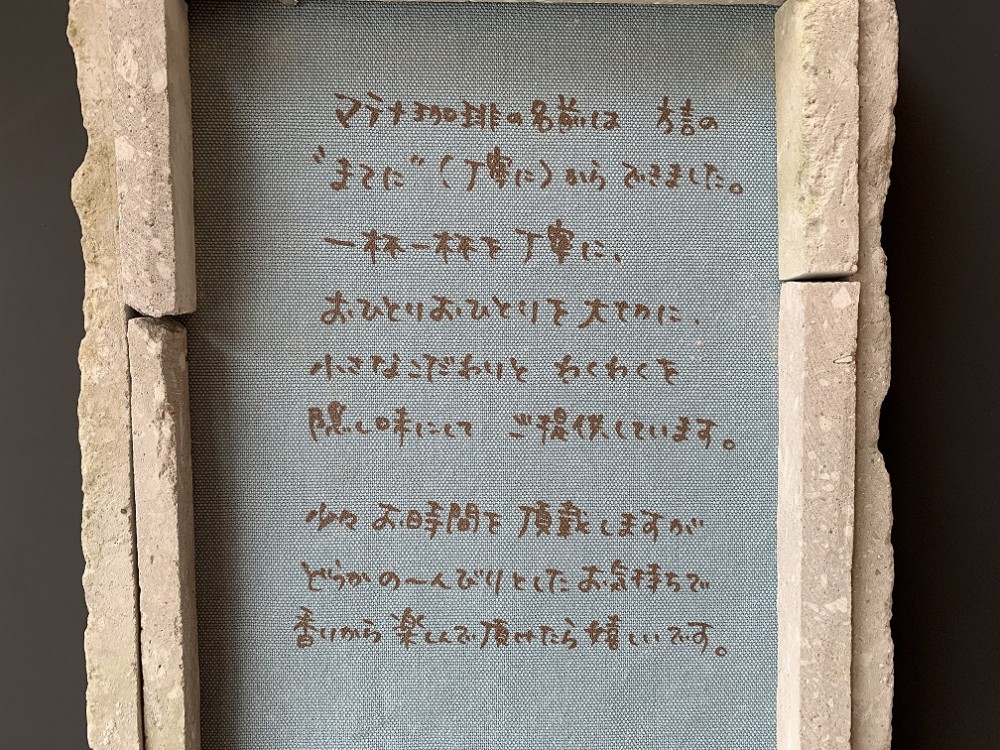 マテナ珈琲の名前は 方言の
"までに"(丁寧に)からできました。
一杯一杯を丁寧に、
おひとりおひとりを大切に、
小さなこだわりと わくわくを
隠し味にして ご提供しています。
少々お時間を頂戴しますが
どうかの〜んびりとしたお気持ちで
香りから楽しんで頂けたら嬉しいです。